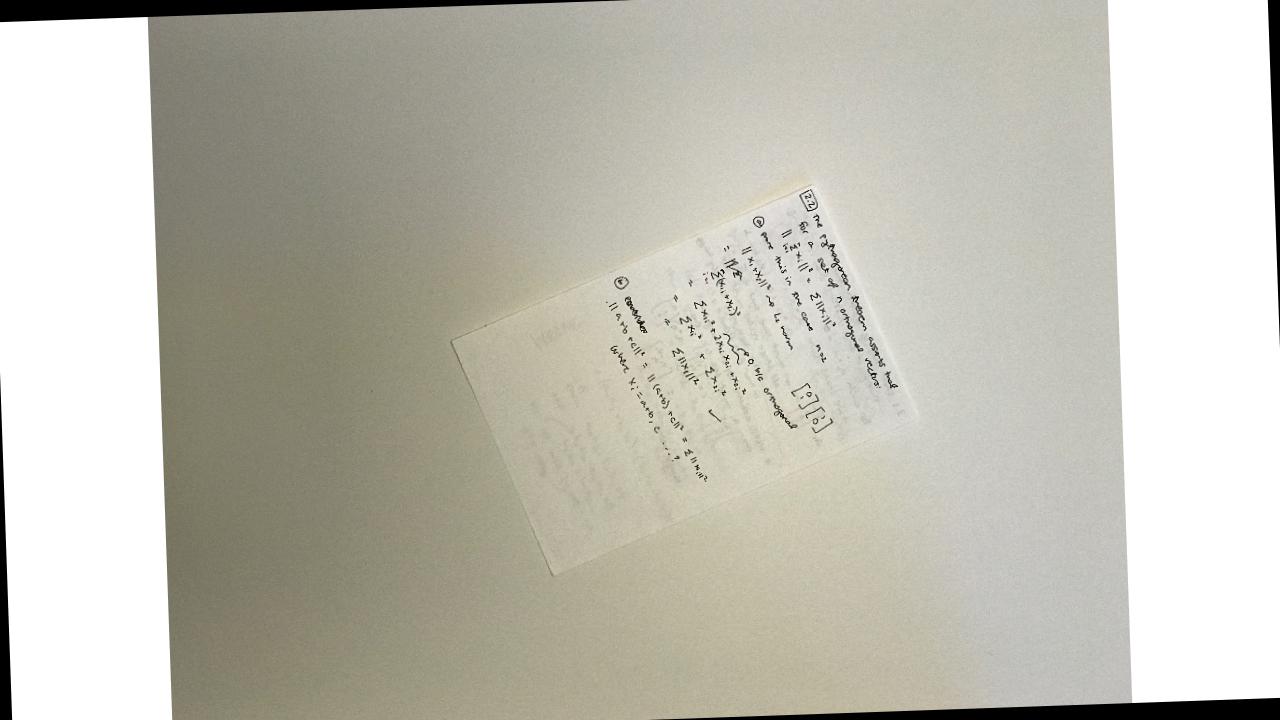 2.2 The pythagorean theorem asserts that
for a set of n orthogonal vectors:
|| Σ xᵢ ||² = Σ ||xᵢ||²
ⓐ prove this in the case n=2
[0 1] [1 0]
|| x₁+x₂ ||² → L₂ norm
= Σ(x₁ᵢ+x₂ᵢ)²
= Σ x₁ᵢ² + 2x₁ᵢx₂ᵢ + x₂ᵢ²
→ 0 b/c orthogonal
= Σ x₁ᵢ² + Σ x₂ᵢ²
= Σ ||xᵢ||² ✓
ⓑ consider
|| a+b+c ||² = || (a+b)+c ||² = Σ ||xᵢ||²
where xᵢ = a+b, c ....?